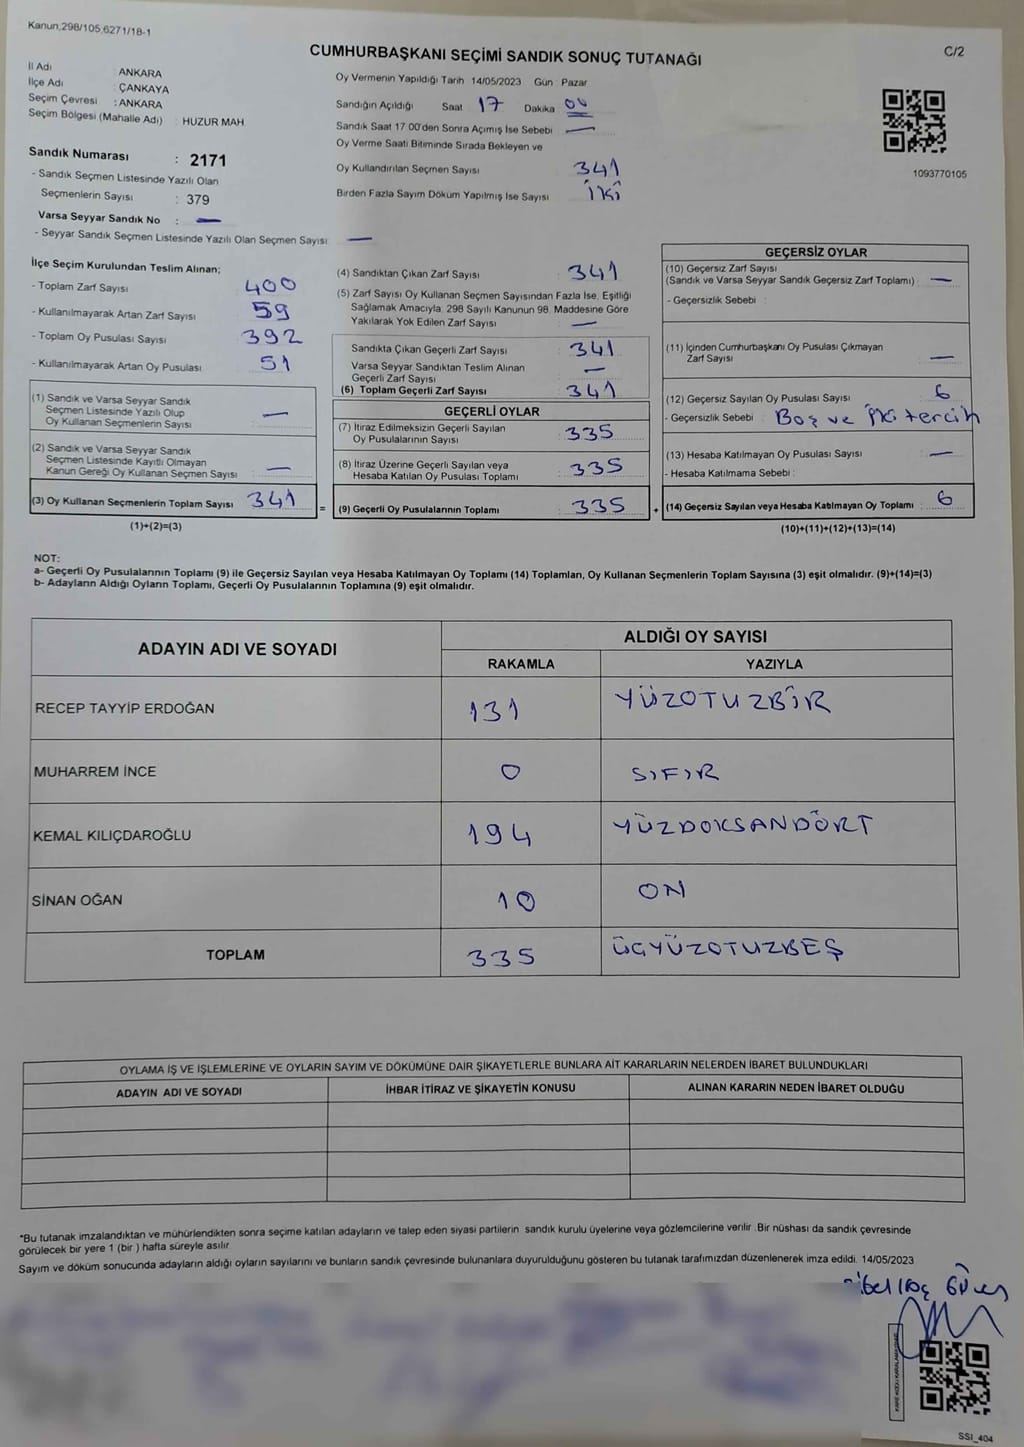 Kanun;298/105,6271/18-1
CUMHURBAŞKANI SEÇİMİ SANDIK SONUÇ TUTANAĞI
C/2
İl Adı ANKARA
İlçe Adı : ÇANKAYA
Seçim Çevresi : ANKARA
Seçim Bölgesi (Mahalle Adı) : HUZUR MAH.
Sandık Numarası : 2171
- Sandık Seçmen Listesinde Yazılı Olan
Seçmenlerin Sayısı : 379
Varsa Seyyar Sandık No : —
- Seyyar Sandık Seçmen Listesinde Yazılı Olan Seçmen Sayısı: —
Oy Vermenin Yapıldığı Tarih 14/05/2023 Gün : Pazar
Sandığın Açıldığı Saat 17 Dakika 00
Sandık Saat 17 00'den Sonra Açımış İse Sebebi —
Oy Verme Saati Bitiminde Sırada Bekleyen ve
Oy Kullandırılan Seçmen Sayısı 341
Birden Fazla Sayım Döküm Yapılmış İse Sayısı İki
1093770105
İlçe Seçim Kurulundan Teslim Alınan;
- Toplam Zarf Sayısı 400
- Kullanılmayarak Artan Zarf Sayısı 59
- Toplam Oy Pusulası Sayısı 392
- Kullanılmayarak Artan Oy Pusulası 51
(1) Sandık ve Varsa Seyyar Sandık
Seçmen Listesinde Yazılı Olup
Oy Kullanan Seçmenlerin Sayısı —
(2) Sandık ve Varsa Seyyar Sandık
Seçmen Listesinde Kayıtlı Olmayan
Kanun Gereği Oy Kullanan Seçmen Sayısı —
(3) Oy Kullanan Seçmenlerin Toplam Sayısı 341
(1)+(2)=(3)
(4) Sandıktan Çıkan Zarf Sayısı 341
(5) Zarf Sayısı Oy Kullanan Seçmen Sayısından Fazla İse, Eşitliği
Sağlamak Amacıyla, 298 Sayılı Kanunun 98. Maddesine Göre
Yakılarak Yok Edilen Zarf Sayısı —
Sandıkta Çıkan Geçerli Zarf Sayısı 341
Varsa Seyyar Sandıktan Teslim Alınan
Geçerli Zarf Sayısı —
(6) Toplam Geçerli Zarf Sayısı 341
GEÇERLİ OYLAR
(7) İtiraz Edilmeksizin Geçerli Sayılan
Oy Pusulalarının Sayısı 335
(8) İtiraz Üzerine Geçerli Sayılan veya
Hesaba Katılan Oy Pusulası Toplamı 335
= (9) Geçerli Oy Pusulalarının Toplamı 335 +
GEÇERSİZ OYLAR
(10) Geçersiz Zarf Sayısı
(Sandık ve Varsa Seyyar Sandık Geçersiz Zarf Toplamı) : —
- Geçersizlik Sebebi :
(11) İçinden Cumhurbaşkanı Oy Pusulası Çıkmayan
Zarf Sayısı —
(12) Geçersiz Sayılan Oy Pusulası Sayısı 6
- Geçersizlik Sebebi : Boş ve İki tercih
(13) Hesaba Katılmayan Oy Pusulası Sayısı —
- Hesaba Katılmama Sebebi :
(14) Geçersiz Sayılan veya Hesaba Katılmayan Oy Toplamı 6
(10)+(11)+(12)+(13)=(14)
NOT:
a- Geçerli Oy Pusulalarının Toplamı (9) ile Geçersiz Sayılan veya Hesaba Katılmayan Oy Toplamı (14) Toplamları, Oy Kullanan Seçmenlerin Toplam Sayısına (3) eşit olmalıdır. (9)+(14)=(3)
b- Adayların Aldığı Oyların Toplamı, Geçerli Oy Pusulalarının Toplamına (9) eşit olmalıdır.
ADAYIN ADI VE SOYADI ALDIĞI OY SAYISI
RAKAMLA YAZIYLA
RECEP TAYYİP ERDOĞAN 131 YÜZOTUZBİR
MUHARREM İNCE 0 SIFIR
KEMAL KILIÇDAROĞLU 194 YÜZDOKSANDÖRT
SİNAN OĞAN 10 ON
TOPLAM 335 ÜÇYÜZOTUZBEŞ
OYLAMA İŞ VE İŞLEMLERİNE VE OYLARIN SAYIM VE DÖKÜMÜNE DAİR ŞİKAYETLERLE BUNLARA AİT KARARLARIN NELERDEN İBARET BULUNDUKLARI
ADAYIN ADI VE SOYADI İHBAR İTİRAZ VE ŞİKAYETİN KONUSU ALINAN KARARIN NEDEN İBARET OLDUĞU
*Bu tutanak imzalandıktan ve mühürlendikten sonra seçime katılan adayların ve talep eden siyasi partilerin sandık kurulu üyelerine veya gözlemcilerine verilir. Bir nüshası da sandık çevresinde
görülecek bir yere 1 (bir ) hafta süreyle asılır.
Sayım ve döküm sonucunda adayların aldığı oyların sayılarını ve bunların sandık çevresinde bulunanlara duyurulduğunu gösteren bu tutanak tarafımızdan düzenlenerek imza edildi. 14/05/2023
SSİ_404